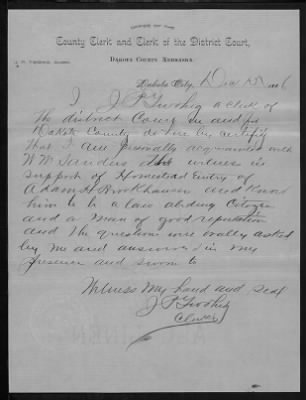 OFFICE OF THE
County Clerk and Clerk of the District Court,
DAKOTA COUNTY NEBRASKA.
Dakota City, 1886
I. J P Twohig a clerk of
The district Court in and for
Dakota County do hereby certify
That I am personally acquainted with
W M Sanders witness in
support of Homestead Entry of
Adam H Brookhauser and know
him to be a law abiding Citizen
and a man of good reputation
and the questions were orally asked
by me and answered in my
presence and sworn to
Witness my hand and seal
J P Twohig
Clerk